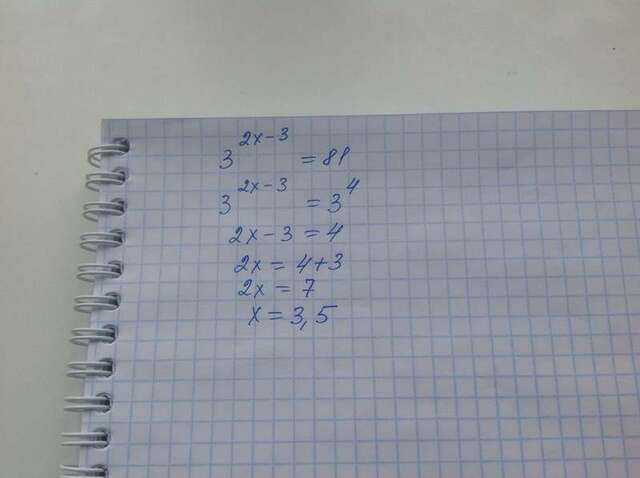 3^{2x-3} = 81
3^{2x-3} = 3^4
2x-3 = 4
2x = 4+3
2x = 7
x = 3,5